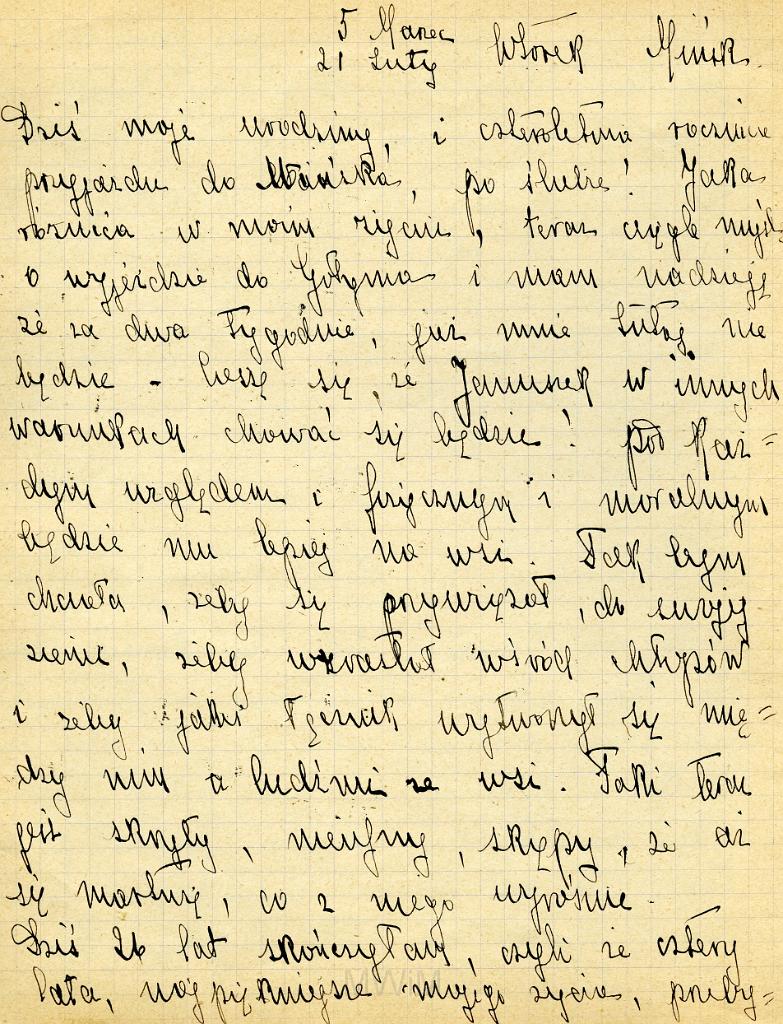 5 Marzec
21 Luty Wtorek Mińsk.
Dziś moje urodziny, i czteroletnia rocznica
przyjazdu do Mińska, po ślubie! Jaka
różnica w moim życiu, teraz ciągle myślę
o wyjeździe do Gołynia i mam nadzieję
że za dwa tygodnie, już mnie tutaj nie
będzie - Cieszę się, że Januszek w innych
warunkach chować się będzie! pod każ=
dym względem i fizycznym i moralnym
będzie mu lepiej na wsi. Tak bym
chciała, żeby się przywiązał, do swojej
ziemi, żeby wzrastał wśród
i żeby jakiś łącznik wytworzył się mię=
dzy nim a ludźmi ze wsi. Taki teraz
jest skryty, nieufny, skąpy, że aż
się martwię, co z niego wyrośnie.
Dziś 26 lat skończyłam, czyli że cztery
lata, najpiękniejsze mojego życia, przeby=
MWiM